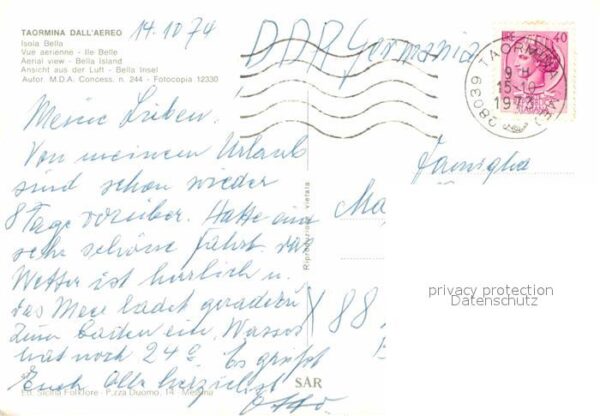 TAORMINA DALL'AEREO
Isola Bella
Vue aérienne - Ile Belle
Aerial view - Bella Island
Ansicht aus der Luft - Bella Insel
Autor. M.D.A. Concess. n. 244 - Fotocopia 12330
14.10.74
DDR Germania
40
98039 TAORMINA
9-H
15-10
1973
Famiglia
Ma
88
Meine Lieben.
Von meinem Urlaub
sind schon wieder
8 Tage vorüber. Hatte eine
sehr schöne Fahrt. das
Wetter ist herrlich u.
das Meer ladet geradezu
zum baden ein. Wasser
hat noch 24°. Es grüßt
Euch Alle herzlichst
Otto.
Riproduzione vietata
privacy protection
Datenschutz
Ed. Sicilia Folklore - P.zza Duomo, 14 - Messina
SAR